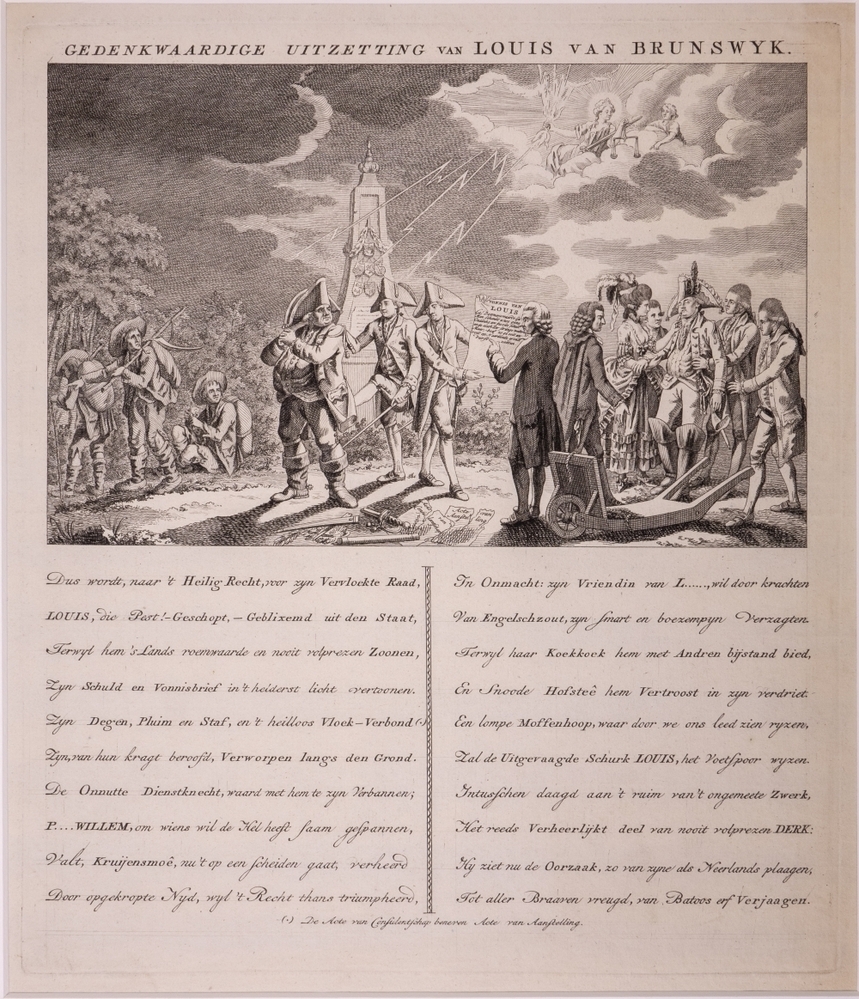 GEDENKWAARDIGE UITZETTING VAN LOUIS VAN BRUNSWYK.
VONNIS VAN
LOUIS
Acte
Dus wordt, naar 't Heilig Recht, voor zyn Vervloekte Raad,
LOUIS, die Pest!-Geschopt, — Geblixemd uit den Staat,
Terwyl hem 's Lands roemwaarde en nooit volprezen Zoonen,
Zyn Schuld en Vonnisbrief in't helderst licht vertoonen.
Zyn Degen, Pluim en Staf, en 't heilloos Vloek-Verbond (·)
Zyn, van hun kragt beroofd, Verworpen langs den Grond.
De Onnutte Dienstknecht, waard met hem te zyn Verbannen;
P....WILLEM, om wiens wil de Hel heeft saam gespannen,
Valt, Kruijensmoê, nu't op een scheiden gaat, verheerd
Door opgekropte Nyd, wyl 't Recht thans triumpheerd,
In Onmacht: zyn Vriendin van L......, wil door krachten
Van Engelschzout, zyn smart en boezempyn Verzagten.
Terwyl haar Koekkoek hem met Andren bijstand bied,
En Snoode Hofsteê hem Vertroost in zyn verdriet.
Een lompe Moffenhoop, waar door we ons leed zien ryzen,
Zal de Uitgevaagde Schurk LOUIS, het Voetspoor wyzen.
Intusschen daagd aan 't ruim van't ongemeete Zwerk,
Het reeds Verheerlijkt deel van nooit volprezen DERK:
Hy ziet nu de Oorzaak, zo van zyne als Neerlands plaagen,
Tot aller Braaven vreugd, van Batoos erf Verjaagen.
(·) De Acte van Consulentschap beneven Acte van Aanstelling.